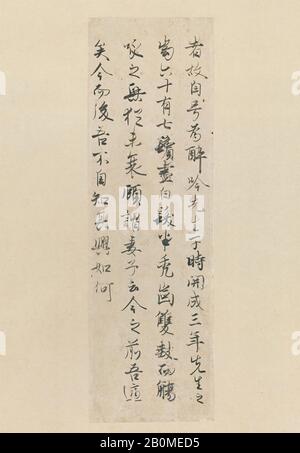 者故自号為醉吟先生于時開成三年先生之
歯六十有七鬚盡白髪半禿歯雙缺而觴
詠之興猶未衰顧謂妻子云今之前吾適
矣今而後吾不自知其興如何
alamy
Image ID: 2B0MED5
www.alamy.com